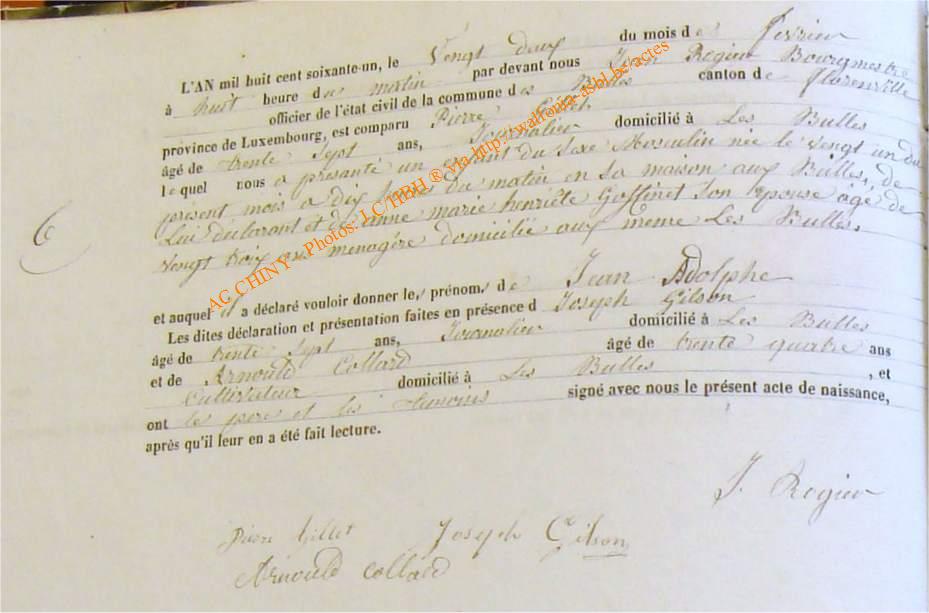 L'AN mil huit cent soixante-un, le Vingt deux du mois de fevrier
à huit heure du matin par devant nous Jean Rogier Bourgmestre
officier de l'état civil de la commune des Bulles canton de Florenville
province de Luxembourg, est comparu Pierre Gillet
âgé de trente Sept ans, Journalier domicilié à Les Bulles
lequel nous a présenté un enfant du Sexe Masculin née le vingt un du
présent mois a dix heures du matin en Sa maison aux Bulles, de
Lui déclarant et de anne marie henriéte Goffinet Son épouse âgé de
vengt trois ans menagère domicilié aux meme Les Bulles
6
et auquel il a déclaré vouloir donner les prénoms de Jean Adolphe
Les dites déclaration et présentation faites en présence d Joseph Gilson
âgé de trente Sept ans, Journalier domicilié à Les Bulles
et de Arnould Collard âgé de trente quatre ans
Cultivateur domicilié à Les Bulles , et
ont le pere et les temoins signé avec nous le présent acte de naissance,
après qu'il leur en a été fait lecture.
J. Rogier
Pierre Gillet Joseph Gilson
Arnould Collard
AG CHINY - Photos: LC HBH ® via http://wallonia-asbl.be/actes